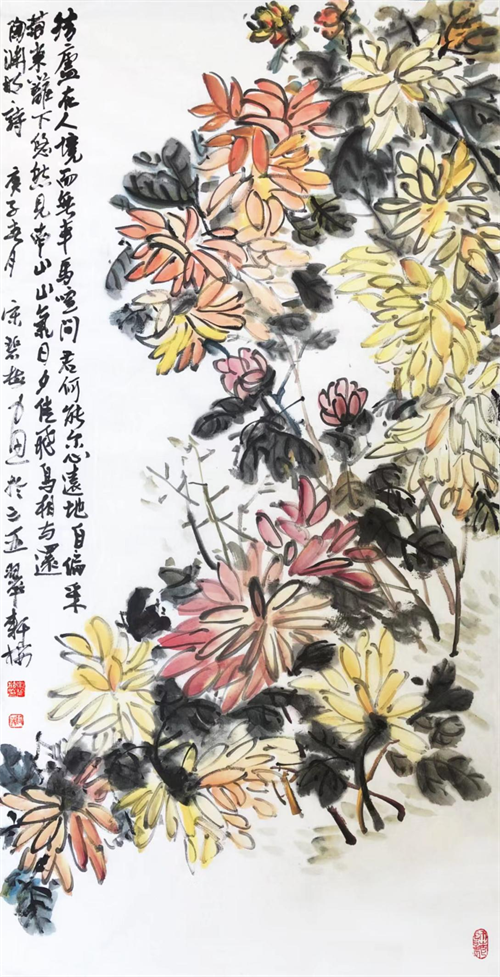 結廬在人境而無車馬喧問君何能尔心遠地自偏采
菊東籬下悠然見南山山氣日夕佳飛鳥相与還
陶淵明詩 庚子 月 宋碧 於三亚翠軒樓